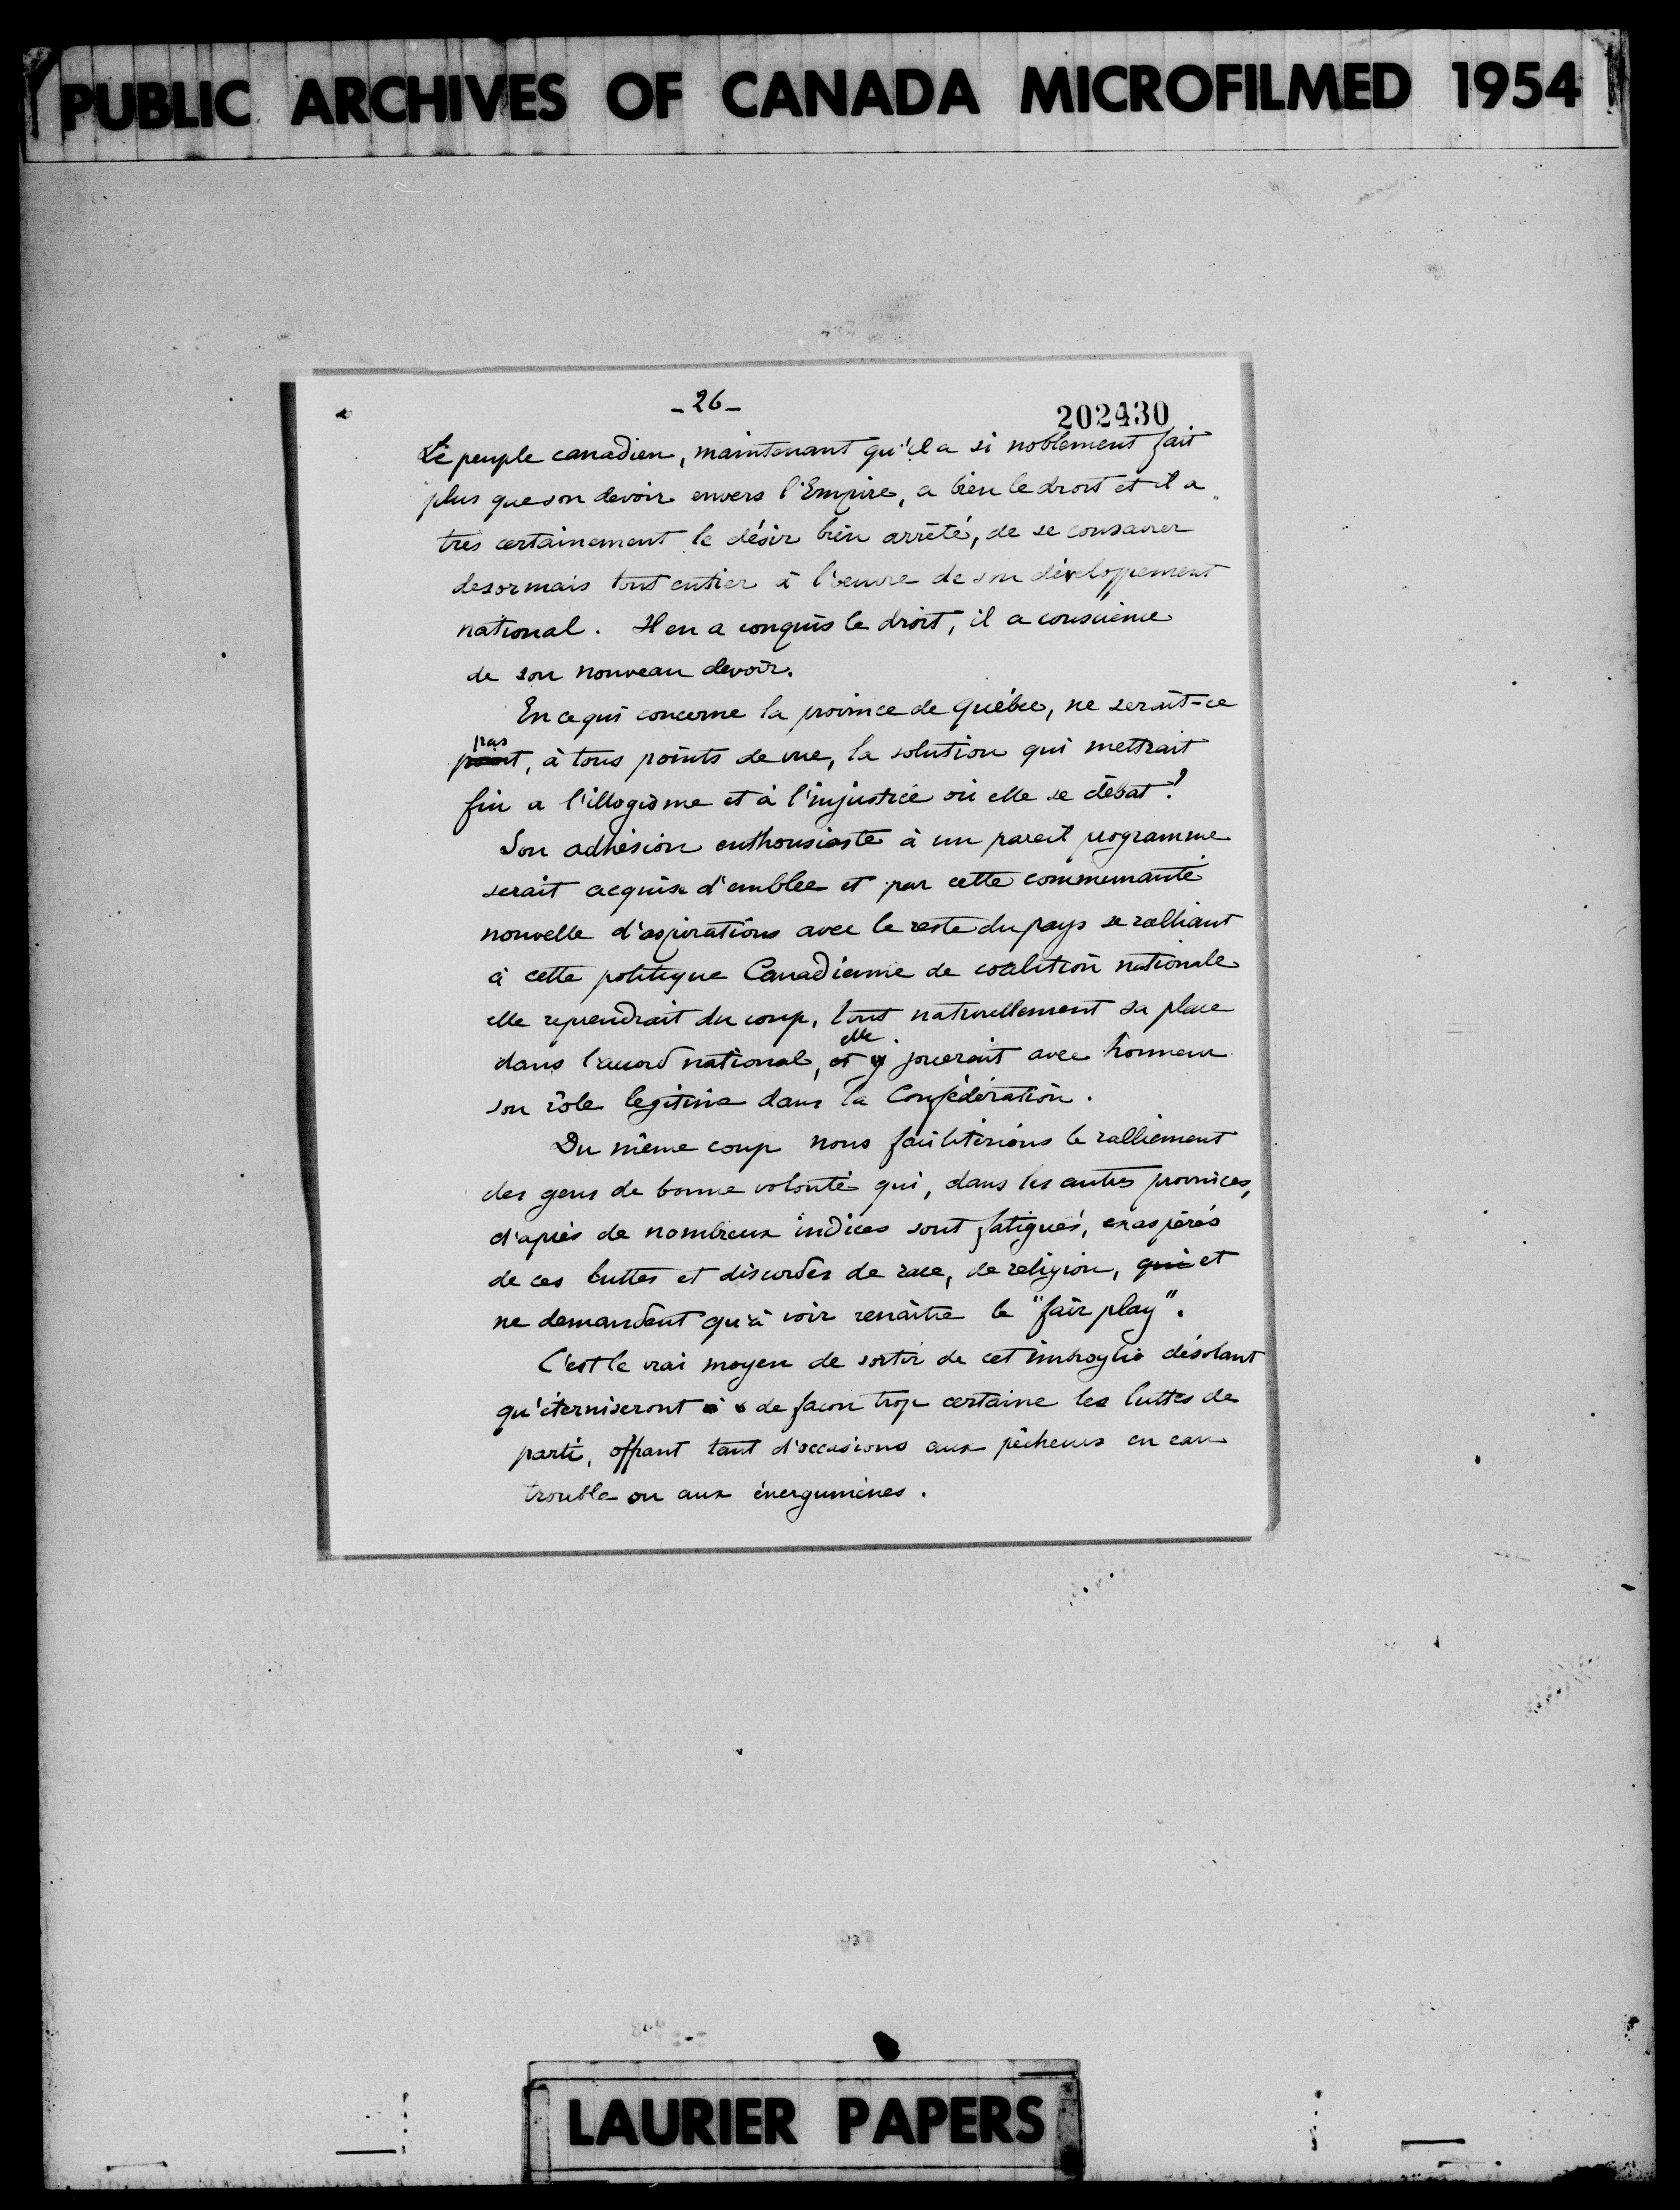 PUBLIC ARCHIVES OF CANADA MICROFILMED 1954
- 26 -
202430
Le peuple canadien, maintenant qu'il a si noblement fait
plus que son devoir envers l'Empire, a bien le droit et il a
très certainement le désir bien arrêté, de se consacrer
desormais tout entier à l'œuvre de son développement
national. Il en a conquis le droit, il a conscience
de son nouveau devoir.
En ce qui concerne la province de Québec, ne serait-ce
pas
point, à tous points de vue, la solution qui mettrait
fin a l'illogisme et à l'injustice où elle se débat?
Son adhésion enthousiaste à un pareil programme
serait acquise d'emblée et par cette communauté
nouvelle d'aspirations avec le reste du pays se ralliant
à cette politique Canadienne de coalition nationale
elle reprendrait du coup, tout naturellement sa place
elle
dans l'accord national, et y jouerait avec honneur
son rôle legitime dans la Confédération.
Du même coup nous faciliterions le ralliement
des gens de bonne volonté qui, dans les autres provinces,
d'après de nombreux indices sont fatigués, exaspérés
de ces luttes et discordes de race, de religion, qui et
ne demandent qu'à voir renaître le "fair play".
C'est le vrai moyen de sortir de cet imbroglio désolant
qu'éterniseront de facon trop certaine les luttes de
parti, offrant tant d'occasions aux pêcheurs en eau
trouble ou aux énergumènes.
LAURIER PAPERS